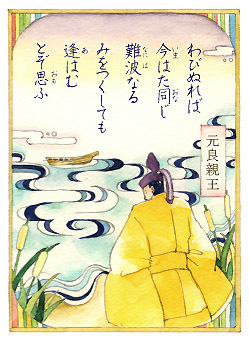 わびぬれば
今はた同じ
難波なる
みをつくしても
逢はむ
とぞ思ふ
元良親王